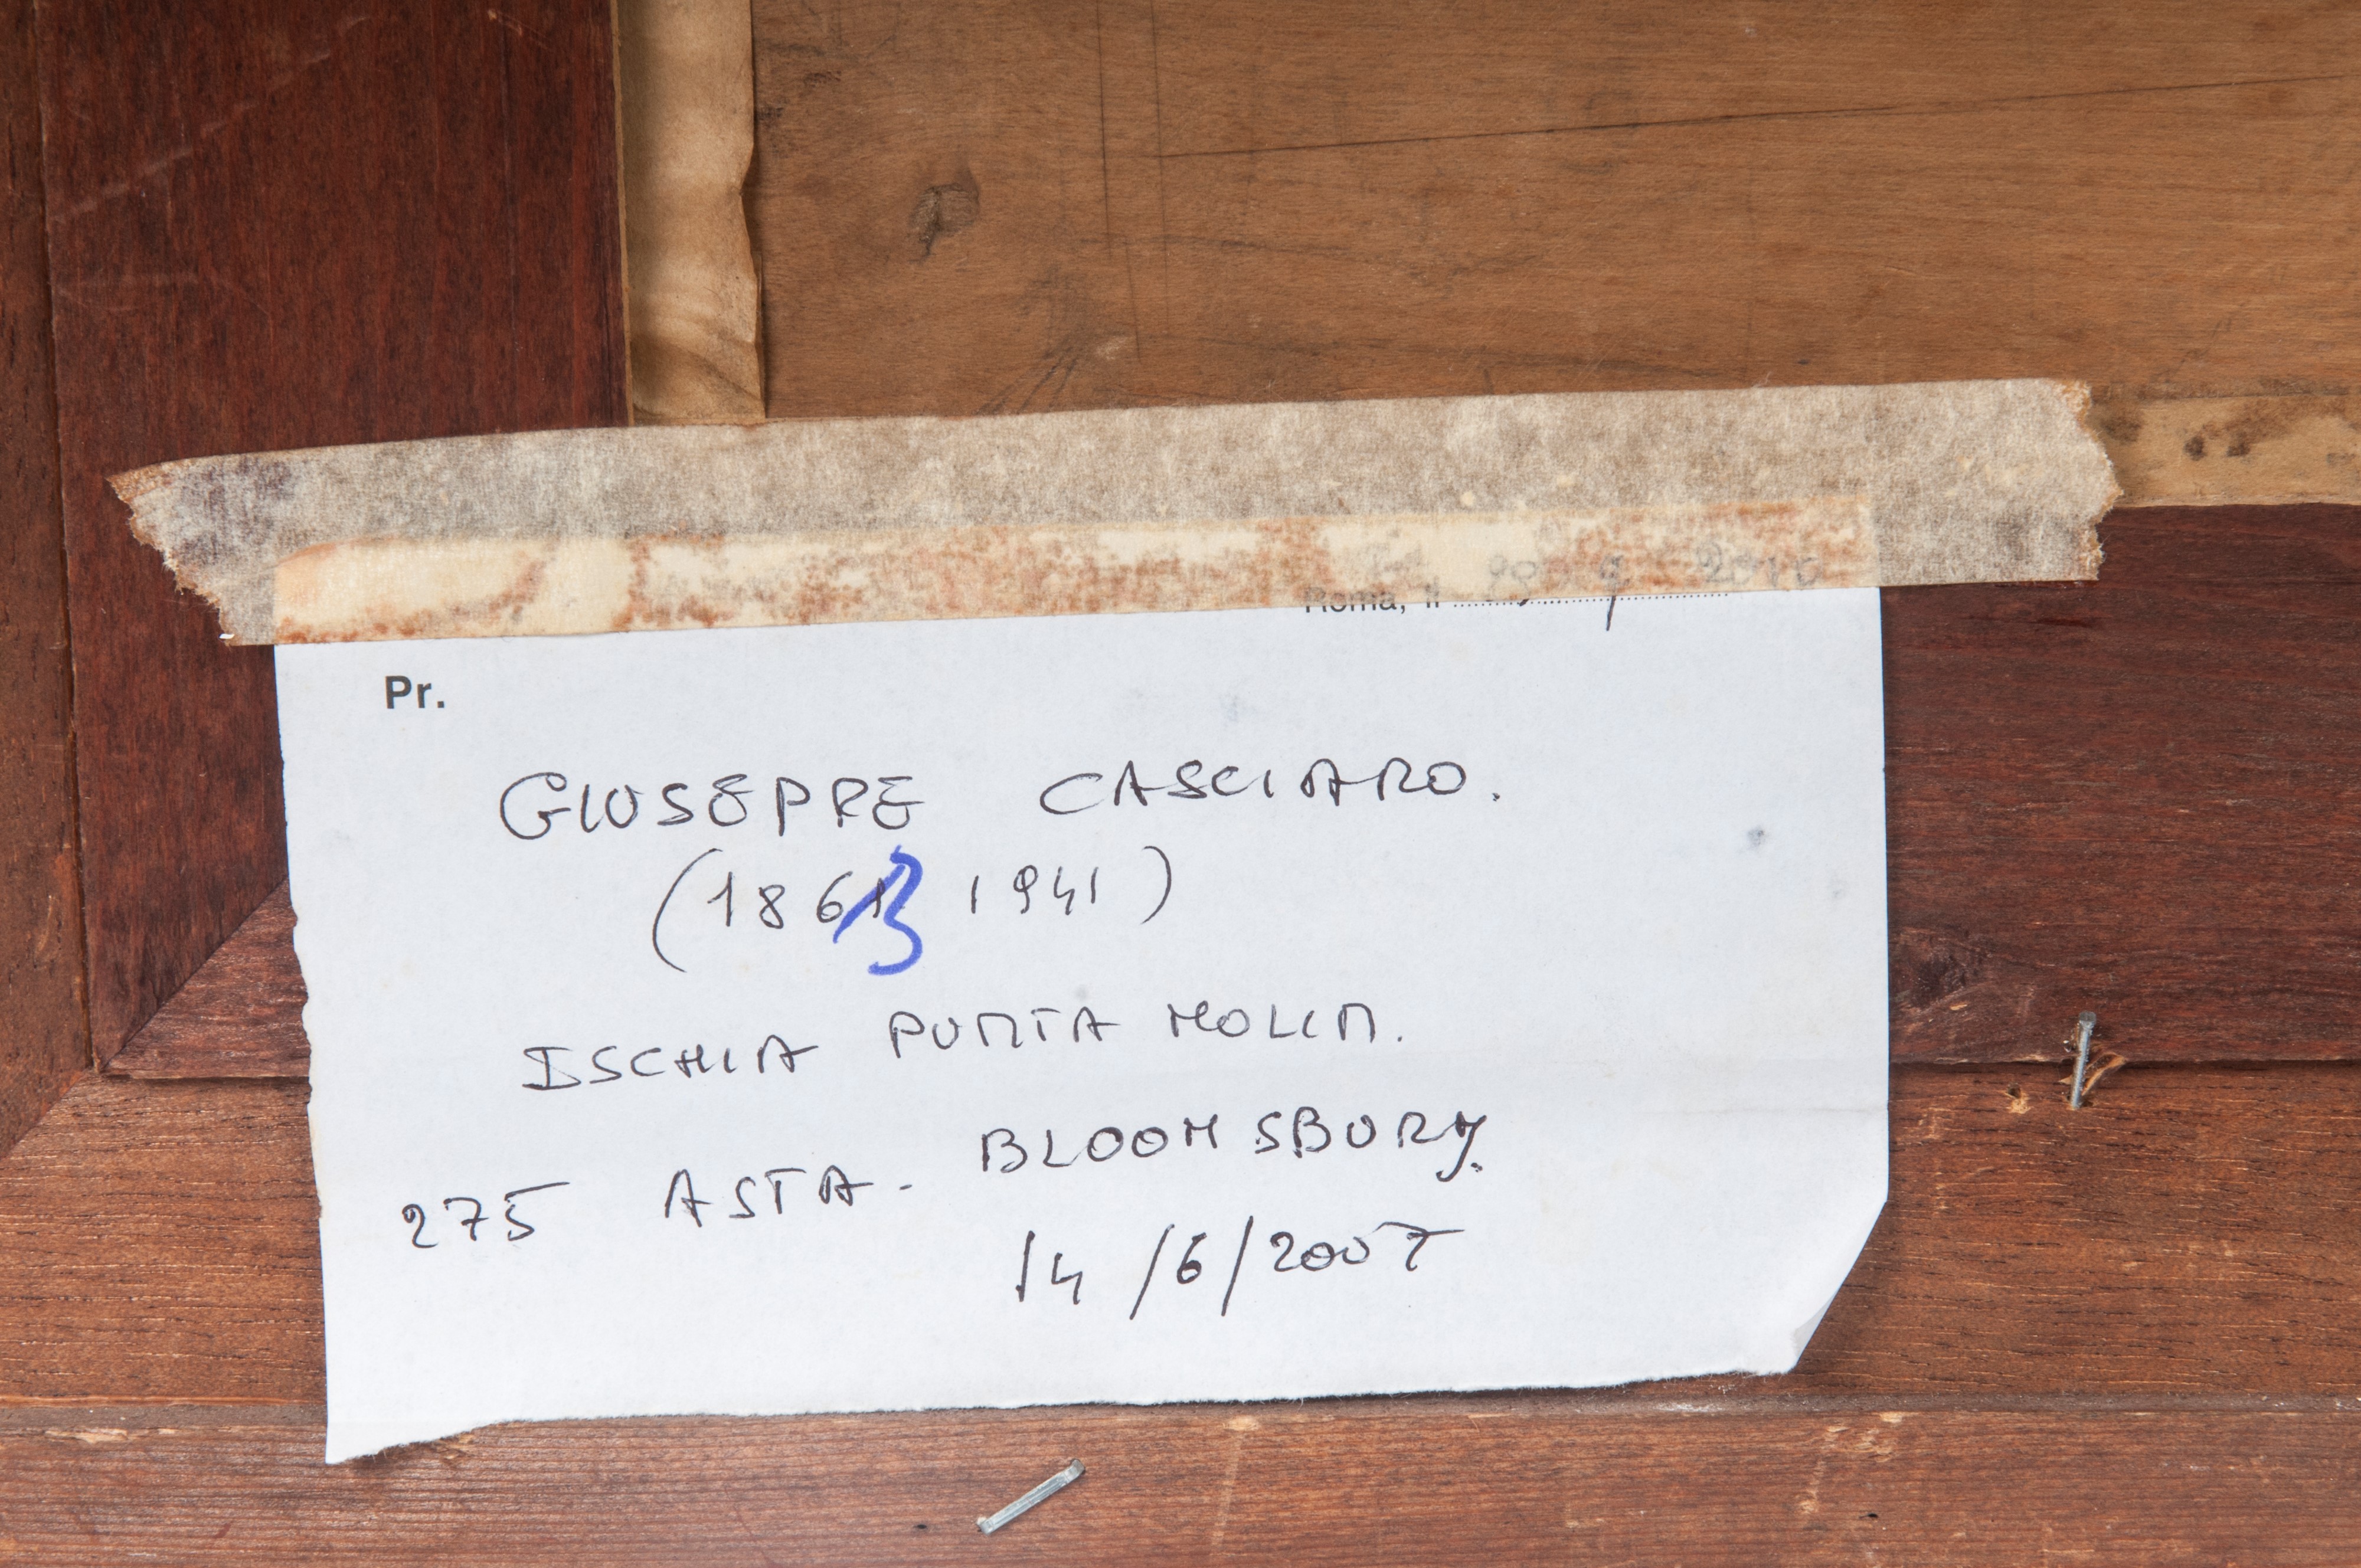 Roma, li 9 2010
Pr.
GIUSEPPE CASCIARO.
(1863 1941)
ISCHIA PUNTA MOLIN.
275 ASTA. BLOOMSBURY.
14/6/2007